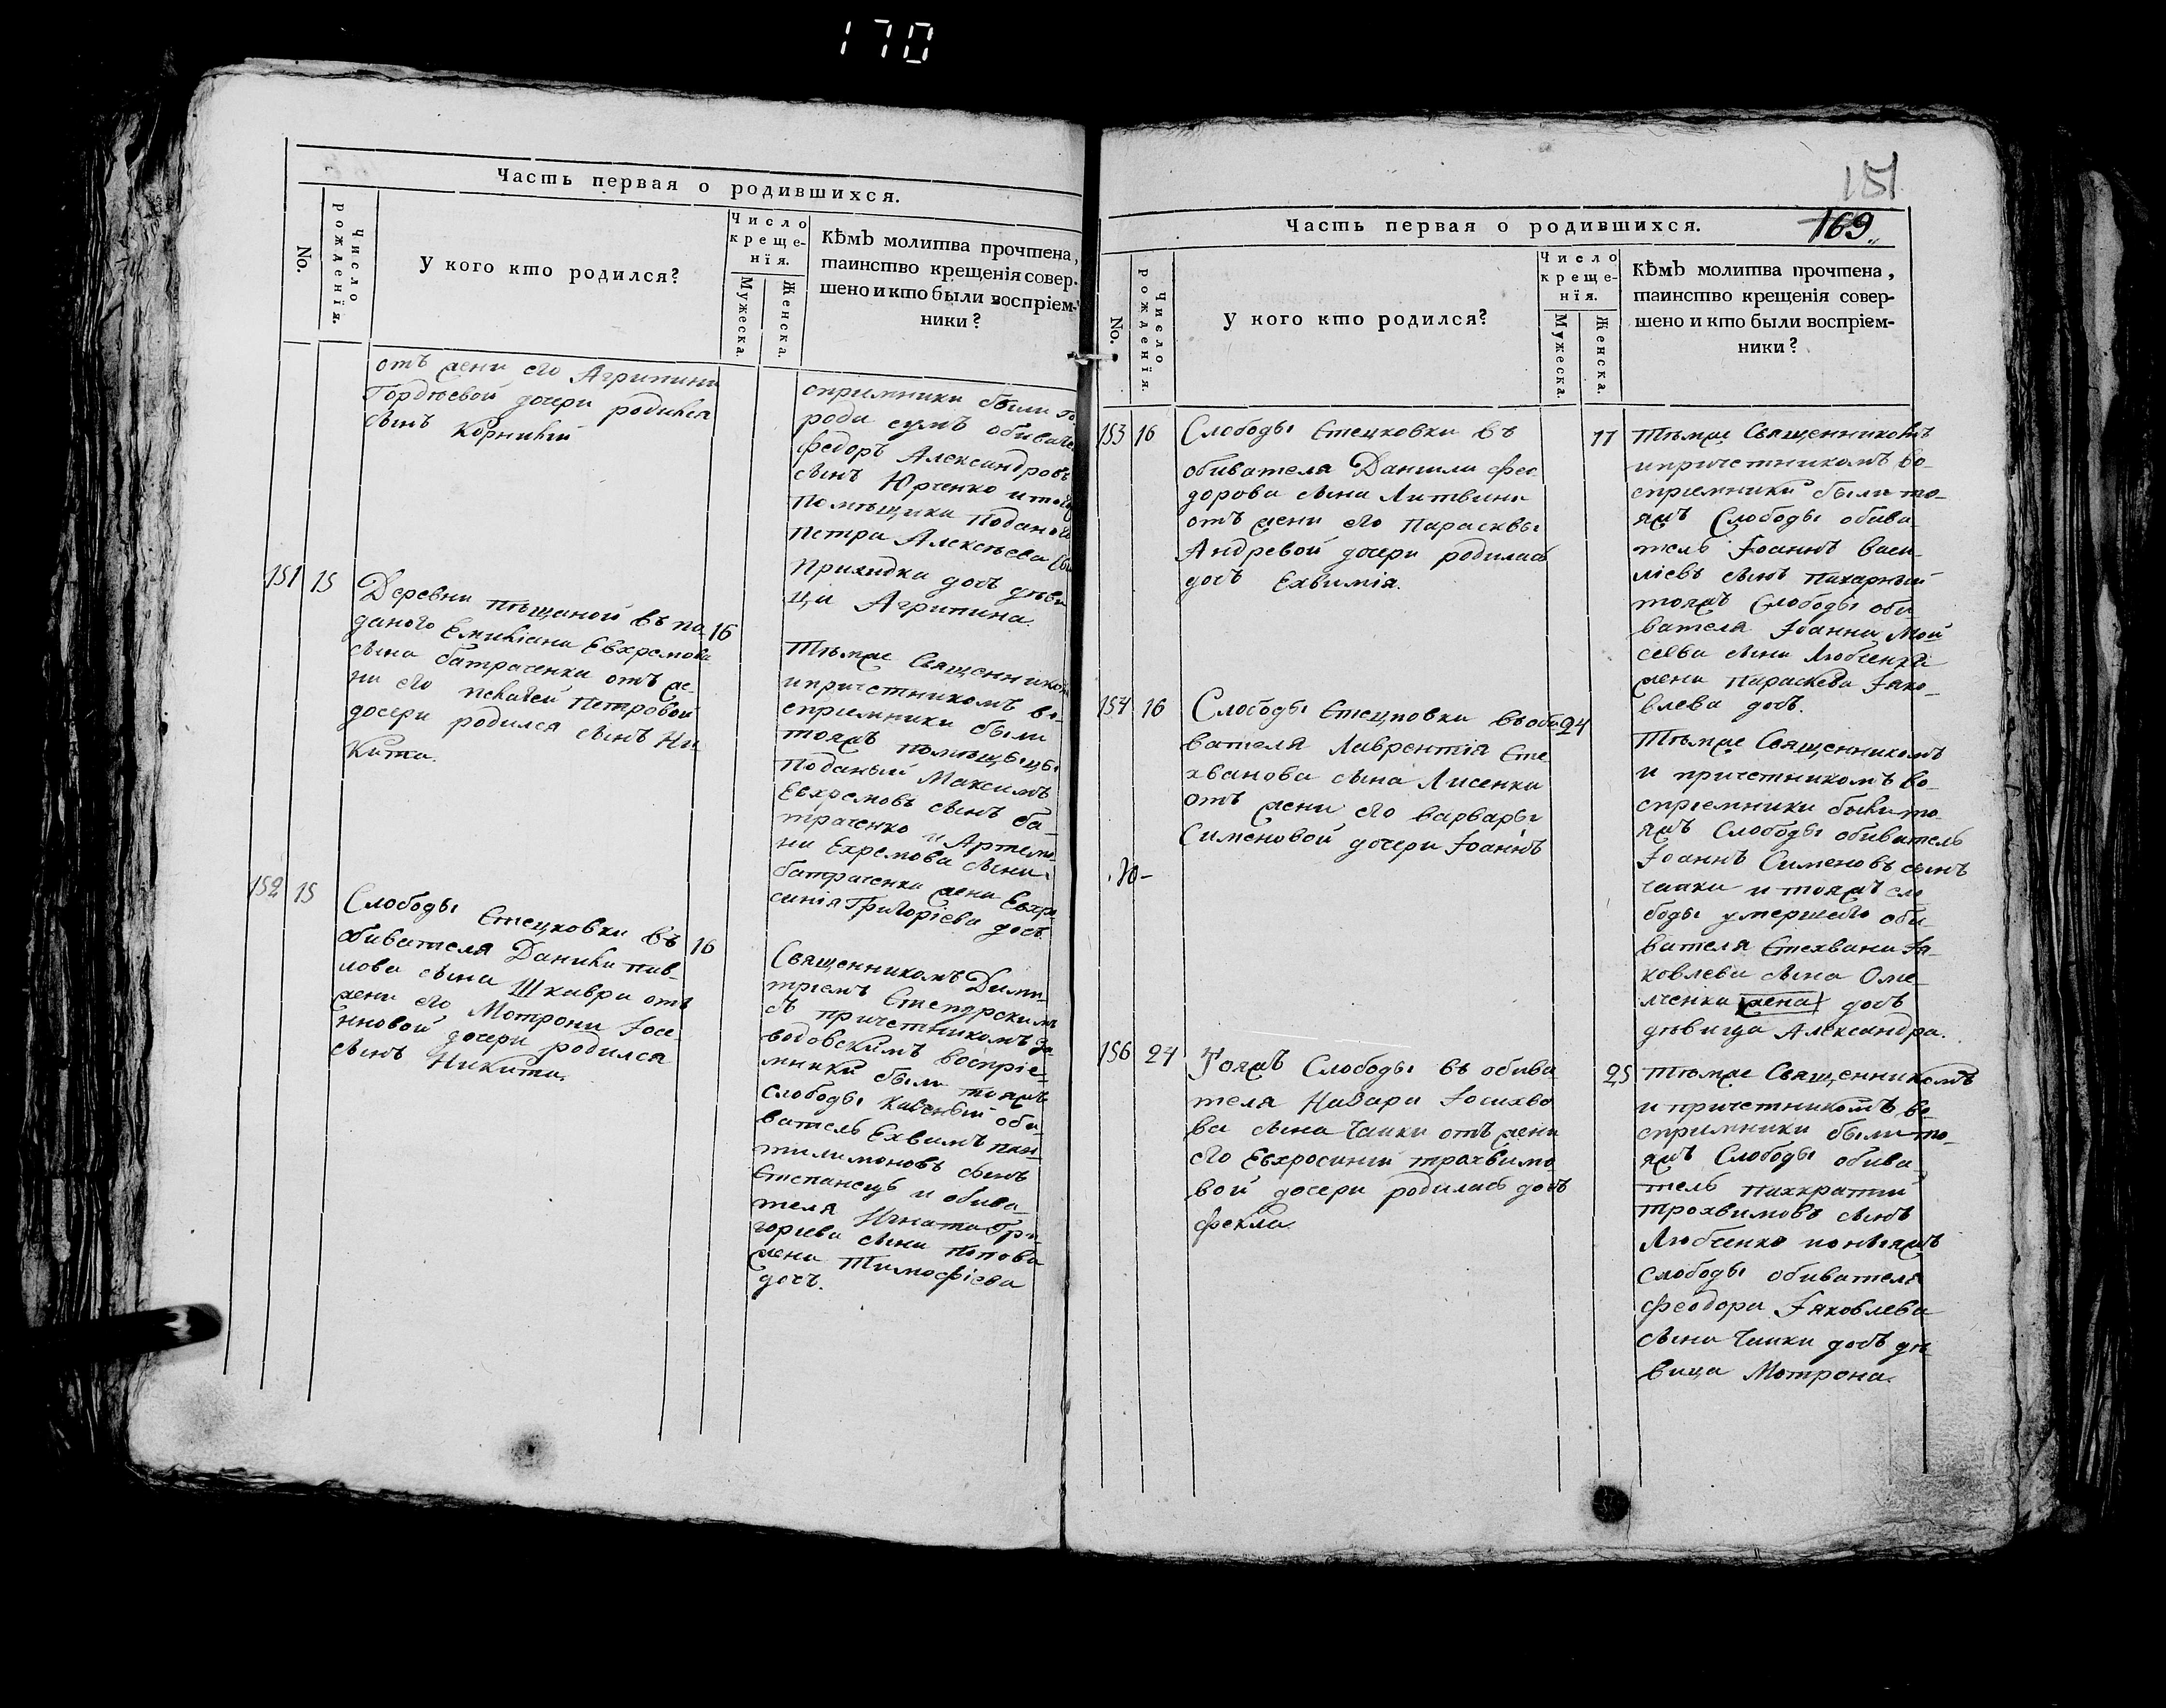 170
Часть первая о родившихся.
No.
Число рожденїя.
У кого кто родился?
Число
креще-
нїя.
Мужеска.
Женска.
Кѣмъ молитва прочтена,
таинство крещенія совер-
шено и кто были воспріем-
ники?
отъ жени его Агрипини
Гордѣевой дочери родился
сынъ Корнилій
сприемники были го
рода сумъ обивате
федоръ Александровъ
сынъ Юрченко и того
помѣщика поданого
петра Алексѣева сы
Приходка дочъ дѣви
ца Агрипина.
151 15
Деревни пѣщаной въ по
даного Емиліана Евхремова
сына батраченка отъ же-
ни его пелагей петровой
дочери родился сынъ Ни
кита.
16
Тѣмже Священникомъ
и причетникомъ во-
сприемники были
тояжъ помѣщыцы
поданый Максимъ
Евхремовъ сынъ ба-
траченко и Артемо
ни Ехремова сына
батраченка жена Евхро
синія Григоріева дочъ
152 15
Слободы Стецковки въ
обивателя Данила пав-
лова сына Шкаври отъ
жени его Мотрони Іосе-
нновой дочери родился
сынъ Никита.
16
Священникомъ Дими-
тріемъ Степурскимъ
съ причетникомъ За
водовскимъ воспріе-
мники были тояжъ
слободы казеный оби-
ватель Ехвимъ пан-
тилимоновъ сынъ
Степанецъ и обива-
теля Игната Гри-
горіева сына попова
жена Тимофіева
дочъ.
151
169
Часть первая о родившихся.
No.
Число рожденїя.
У кого кто родился?
Число
креще-
нїя.
Мужеска.
Женска.
Кѣмъ молитва прочтена,
таинство крещенія совер-
шено и кто были воспріем-
ники?
153 16
Слободы Стецковки въ
обивателя Даниила Фео
дорова сына Литвина
отъ жени его Парасквы
Андревой дочери родилась
дочъ Ехвимія.
17
Тѣмже Священникомъ
и причетникомъ во-
сприемники были то-
яжъ Слободы обива-
тель Іоаннъ Васи-
ліевъ сынъ пахарный
тояжъ Слободы оби
вателя Іоанна Мой
сеева сына Любченка
жена параскева Іяко-
влева дочъ.
154 16
Слободы Стецковки въ оби
вателя Лаврентія Сте
хванова сына Лисенка
отъ жени его варвары
Сименовой дочери Іоаннъ
24
Тѣмже Священникомъ
и причетникомъ во-
сприемники были то
яжъ Слободы обиватель
Іоаннъ Сименовъ сынъ
чаика и тояжъ сло
боды умершего оби-
вателя Стехвана Ія-
ковлева сына Оме
лченка жена дочъ
дѣвица Александра.
156 24
Тояжъ Слободы въ обива
теля Назара Іосихво
ва сына чаики отъ жени
его Евхросинии трохвимо
вой дочери родилась дочъ
фекла.
25
Тѣмже Священникомъ
и причетникомъ во-
сприемники были то-
яжъ Слободы обива-
тель панкратий
трохвимовъ сынъ
Любченко
Слободы обивателя
Феодора Іяковлева
сына чаики дочъ дѣ
вица Мотрона.